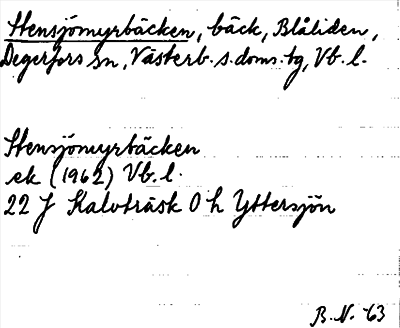 Stensjömyrbäcken, bäck, Blåliden,
Degerfors sn, Västerb. s. doms. tg, Vb. l.
Stensjömyrbäcken
ek (1962) Vb. l.
22 J Kalvträsk 0 h Yttersjön
B. N. 63